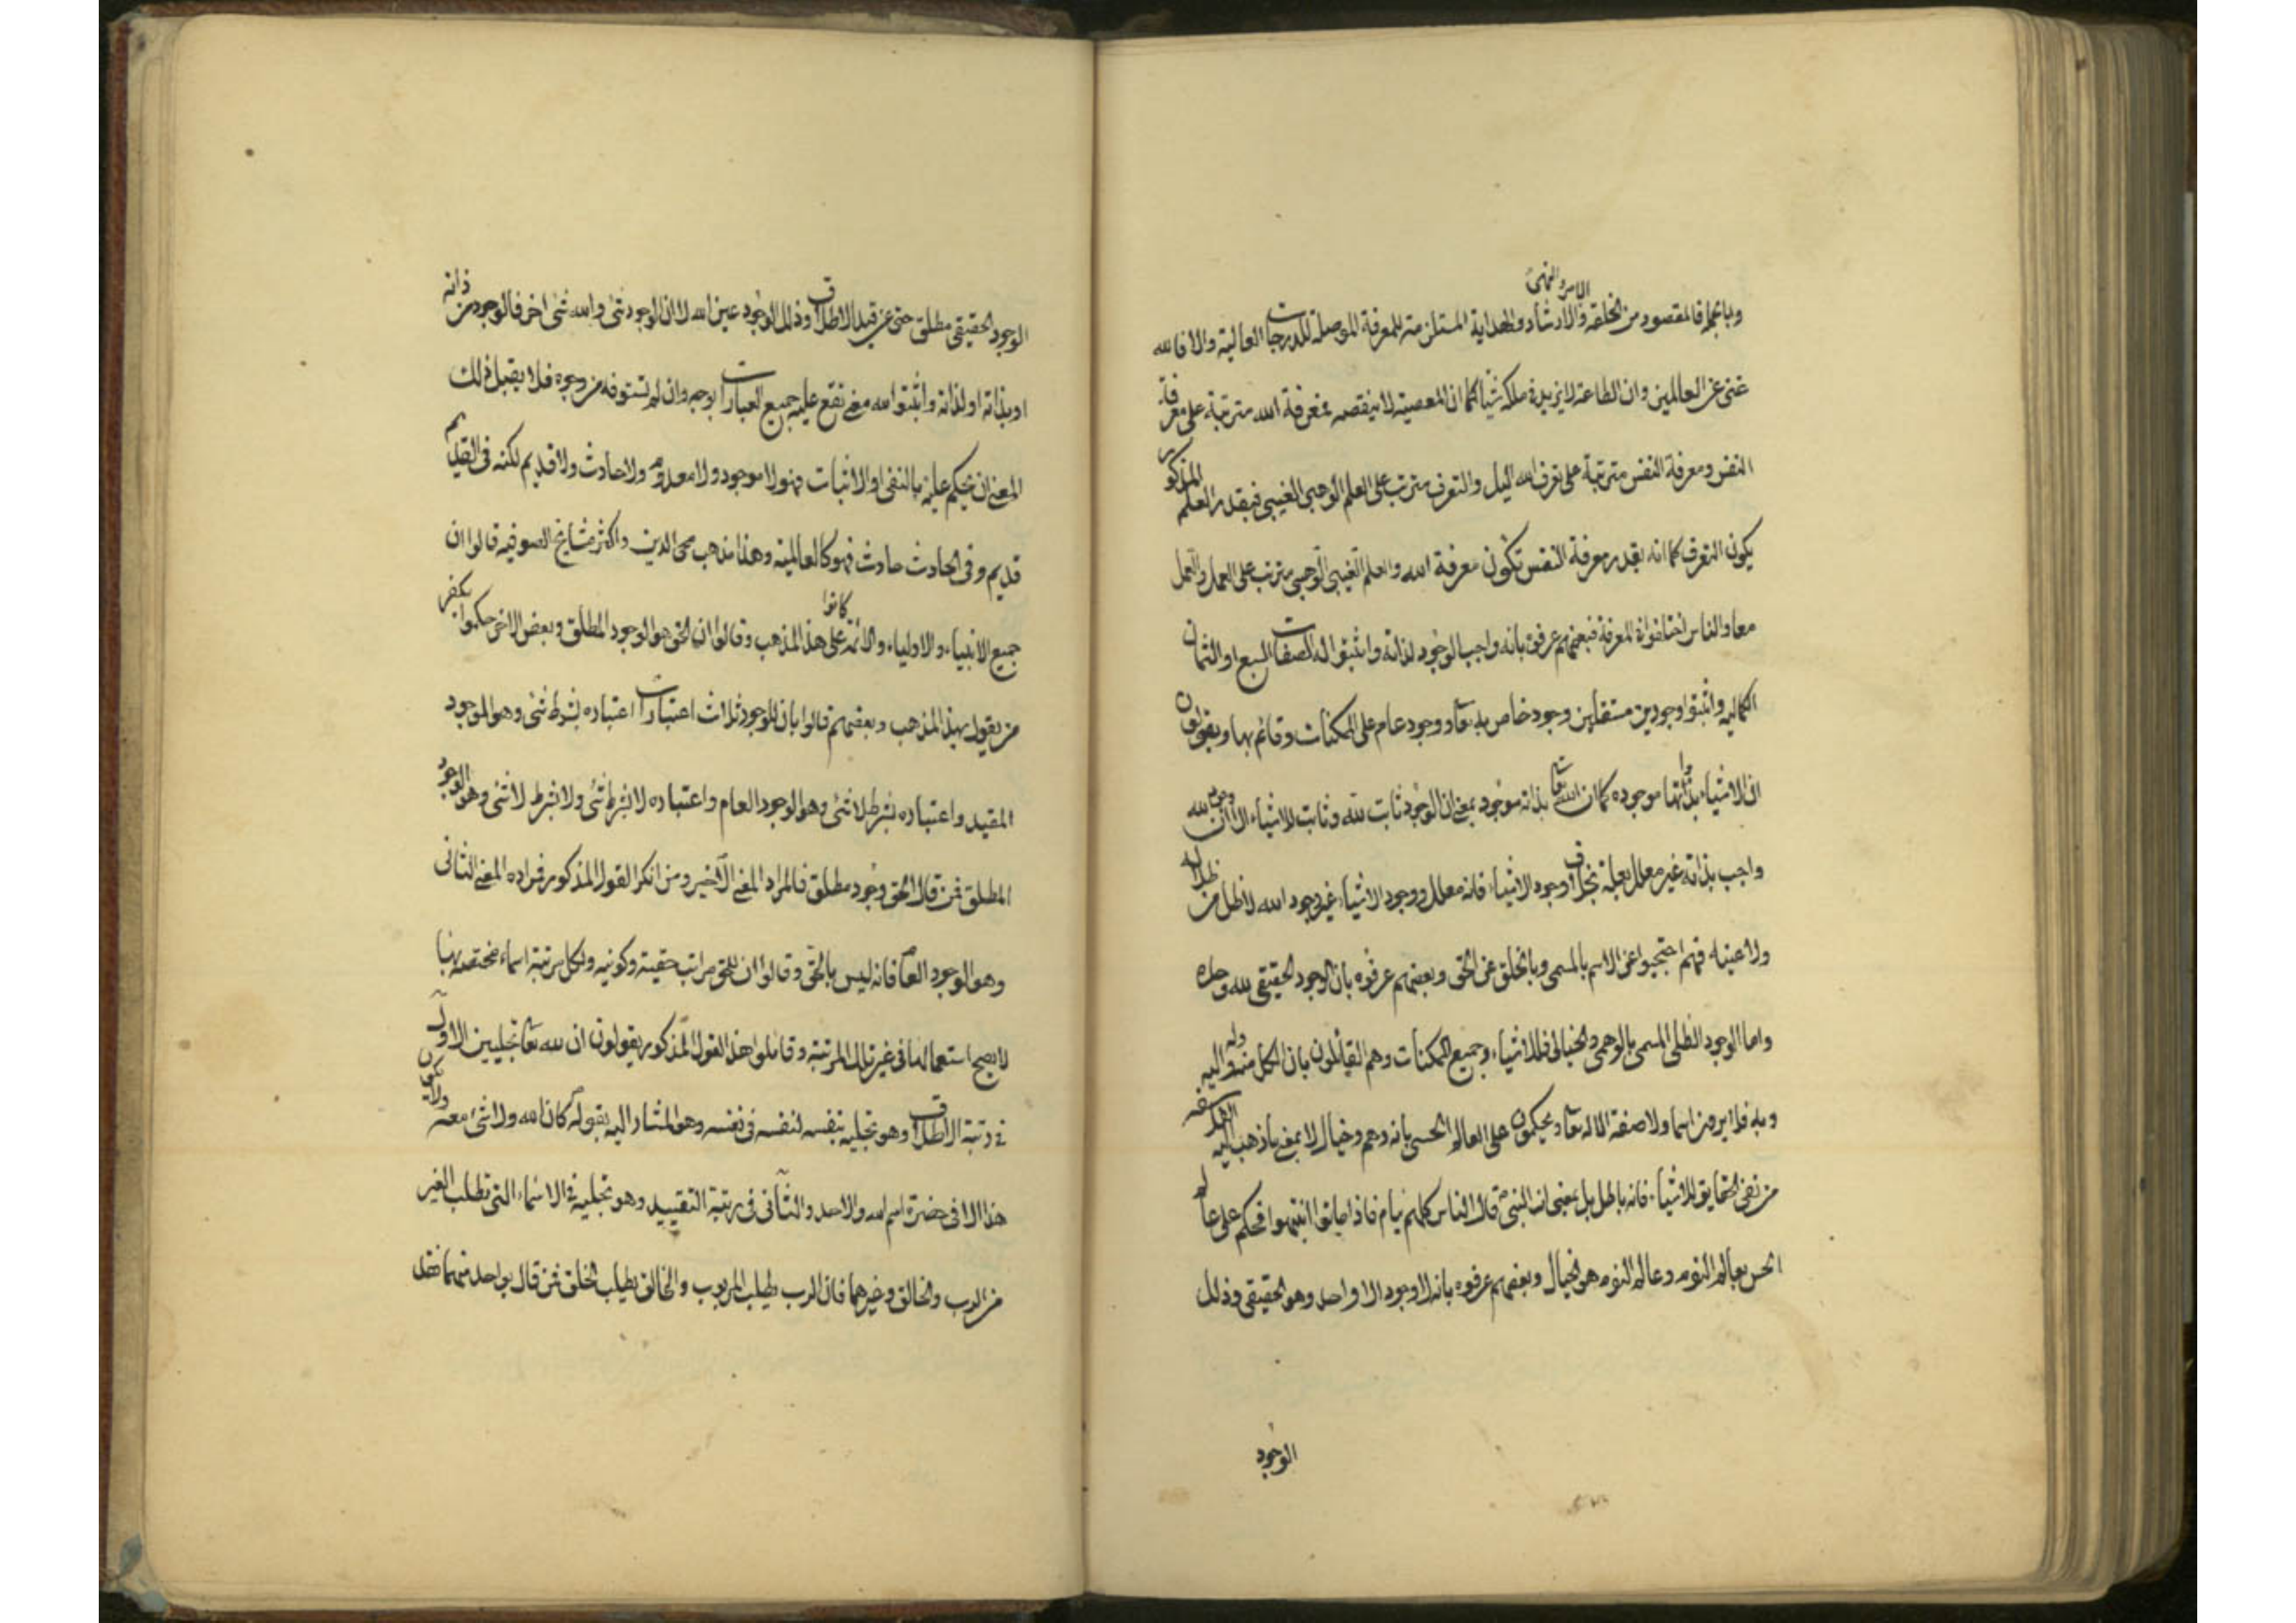 وبالجملة فالمقصود من الخلقة والارشاد والهداية الامر والنهي المستلزمة للمعرفة الموصلة للدرجات العالية والا فالله
غني عن العالمين وان الطاعة لا يزيد في ملكه شيأ كما ان المعصية لا ينقصه فمعرفة الله مترتبة على معرفة
النفس ومعرفة النفس مترتبة على تعرف الله اليك والتعرف مترتب على العلم الوهبي الغيبي فبقدر العلم المذكور
يكون التعرف كما انه بقدر معرفة النفس تكون معرفة الله والعلم الغيبي الوهبي مترتب على العمل والعمل
معا والناس اختلفوا في المعرفة فبعضهم عرفوه بانه واجب الوجود لذاته واثبتوا له الصفات السبع او الثمان
الكمالية واثبتوا وجودين مستقلين وجود خاص به تعا ووجود عام على الممكنات وقائم بها ويقولون
ان الاشياء بذواتها موجوده كما ان الله تعا بذاته موجود بمعنى ان الوجود ثابت لله وثابت للاشياء الا ان وجود الله
واجب بذاته غير معلل بعلة بخلاف وجود الاشياء فانه معلل ووجود الاشياء غير وجود الله لا ظل من ظلاله
ولا عينه فهم احتجبوا عن الاسم بالمسمى وبالخلق عن الحق وبعضهم عرفوه بان الوجود الحقيقي لله وحده
واما الوجود الظلي المسمى بالوهمي والخيالي فللاشياء وجميع الممكنات وهم القائلون بان الكل منه وله واليه
وبه فلا يرون اسما ولا صفة الا له تعا ويحكمون على العالم الحسي بانه وهم وخيال لا بمعنى ما ذهب اليه الفلاسفه
من نفي الحقايق للاشياء فانه باطل بل بمعنى ان النبي قال الناس كلهم نيام فاذا ماتوا انتبهوا فحكم على عالم
الحس بعالم النوم وعالم النوم هو الخيال وبعضهم عرفوه بانه لا وجود الا واحد وهو الحقيقي وذلك
الوجود
الوجود الحقيقي مطلق حتى عن قيد الاطلاق وذلك الوجود عين الله لا ان الوجود شئ والله شئ اخر فالوجود من ذاته
او بذاته او لذاته واثبتوا لله معنى تقع عليه جميع العبارات بوجه وان لم تستوفه من وجوه فلا يقبل ذلك
المعنى ان يحكم عليه بالنفي او الاثبات فهو لا موجود ولا معدوم ولا حادث ولا قديم لكنه في القديم
قديم وفي الحادث حادث فهو كالعالمية وهذا مذهب محي الدين واكثر مشايخ الصوفيه قالوا ان
جميع الانبياء والاولياء والائمة كانوا على هذا المذهب وقالوا ان الحق هو الوجود المطلق وبعض الاخر حكموا بكفر
من يقول بهذا المذهب وبعضهم قالوا بان للوجود ثلاث اعتبارات اعتباره بشرط شئ وهو الموجود
المقيد واعتباره بشرط لا شئ وهو الوجود العام واعتباره لا بشرط شئ ولا بشرط لا شئ وهو الوجود
المطلق فمن قال الحق وجود مطلق فالمراد المعنى الاخير ومن انكر القول المذكور فمراده المعنى الثاني
وهو الوجود العام فانه ليس بالحق وقالوا ان للحق مراتب حقيته وكونيه ولكل مرتبة اسماء مختصة بها
لا يصح استعمالها في غير تلك المرتبة وقائلوا هذا القول المذكور يقولون ان لله تعا تجليين الاول
في رتبة الاطلاق وهو تجليه بنفسه لنفسه في نفسه وهو المشار اليه بقوله كان الله ولا شئ معه ولا يكون
هذا الا في حضرة اسم الله والاحد والثاني في رتبة التقييد وهو تجليه في الاسماء التي تطلب الغير
من الرب والخالق وغيرهما فان الرب يطلب المربوب والخالق يطلب الخلق فمن قال بواحد منهما فقد